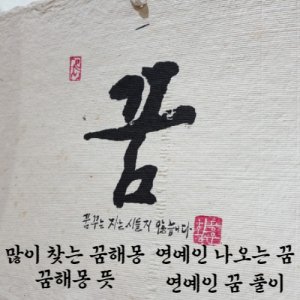 꿈
꿈꾸는 자는 시들지 않습니다.
많이 찾는 꿈해몽 연예인 나오는 꿈
꿈해몽 뜻 연예인 꿈 풀이